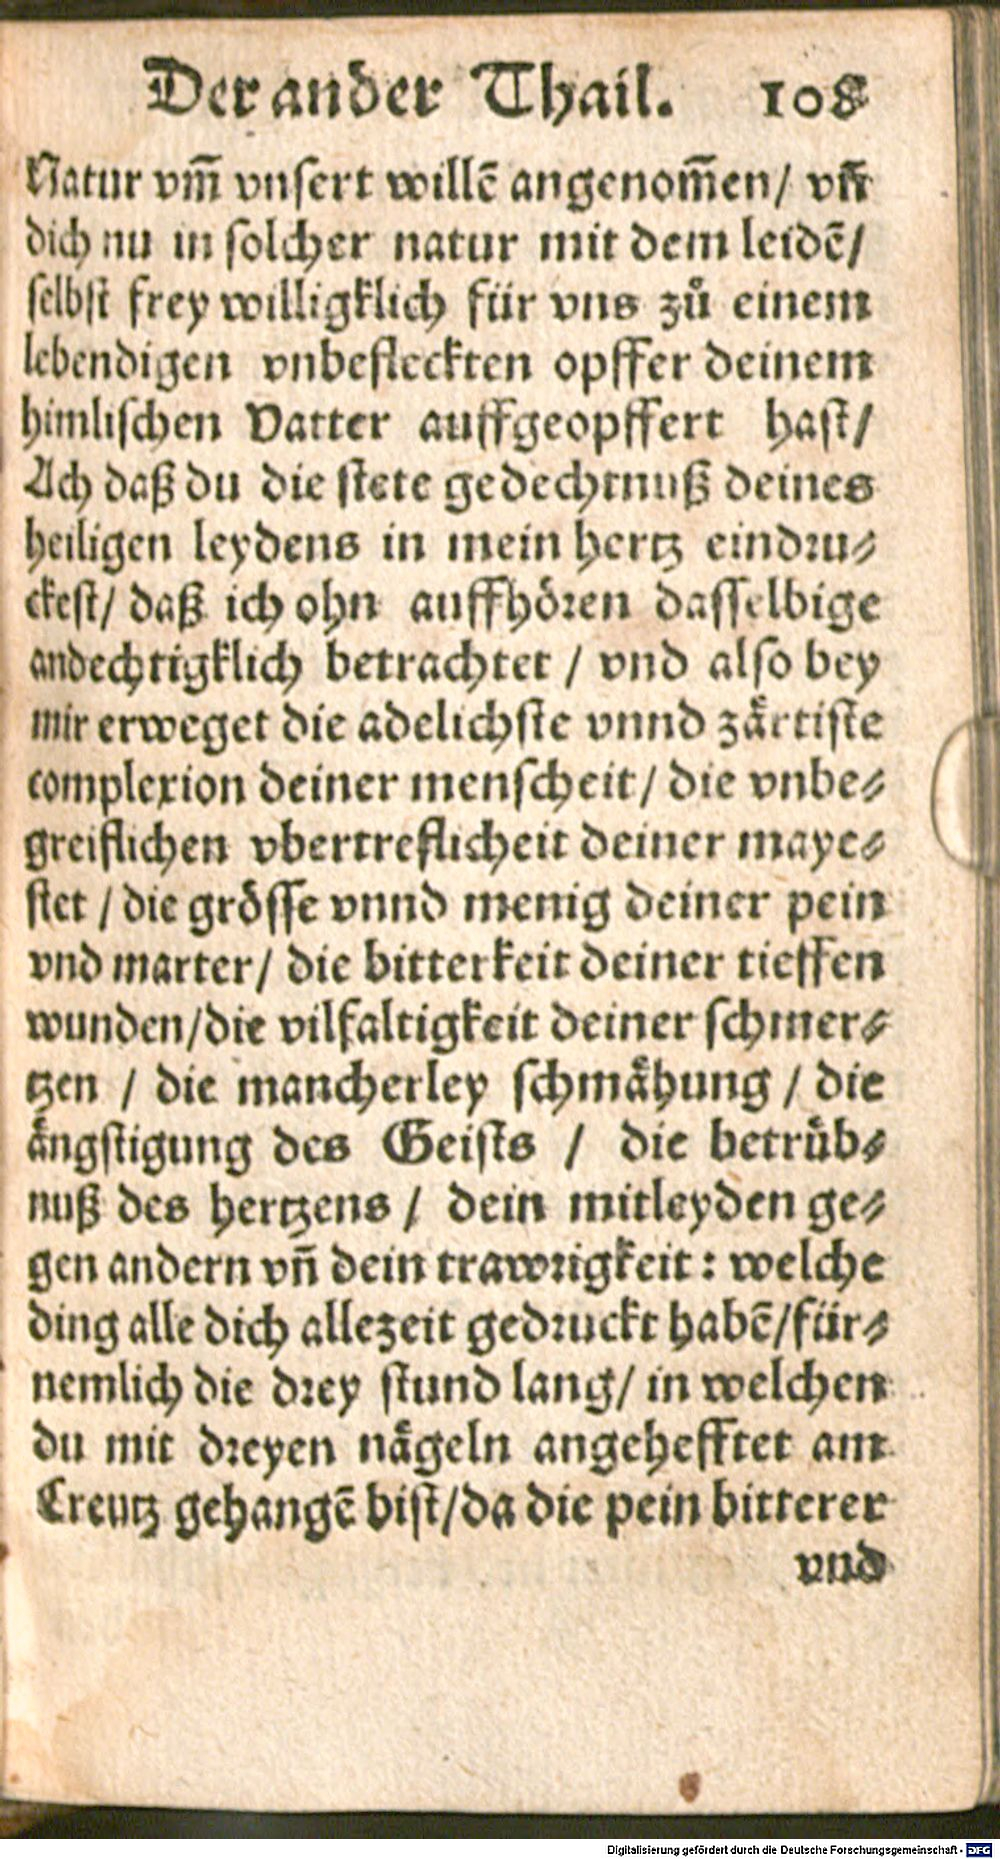 Der ander Thail. 108
Natur vm̃ vnsert willẽ angenom̃en/ vñ
dich nu in solcher natur mit dem leidẽ/
selbst frey willigklich für vns zů einem
lebendigen vnbesteckten opffer deinem
himlischen Vatter auffgeopffert hast/
Ach daß du die stete gedechtnuß deines
heiligen leydens in mein hertz eindru⸗
ckest/ daß ich ohn auffhören dasselbige
andechtigklich betrachtet / vnd also bey
mir erweget die adelichste vnnd zärtiste
complexion deiner menscheit/ die vnbe⸗
greiflichen vbertreflicheit deiner maye⸗
stet / die grösse vnnd menig deiner pein
vnd marter/ die bitterkeit deiner tieffen
wunden/die vilfaltigkeit deiner schmer⸗
tzen / die mancherley schmähung / die
ängstigung des Geists / die betrüb⸗
nuß des hertzens / dein mitleyden ge⸗
gen andern vñ dein trawrigkeit: welche
ding alle dich allezeit gedruckt habẽ/für⸗
nemlich die drey stund lang/ in welchen
du mit dreyen nägeln angehefftet am
Creutz gehangẽ bist/da die pein bitterer
vnd
Digitalisierung gefördert durch die Deutsche Forschungsgemeinschaft - DFG